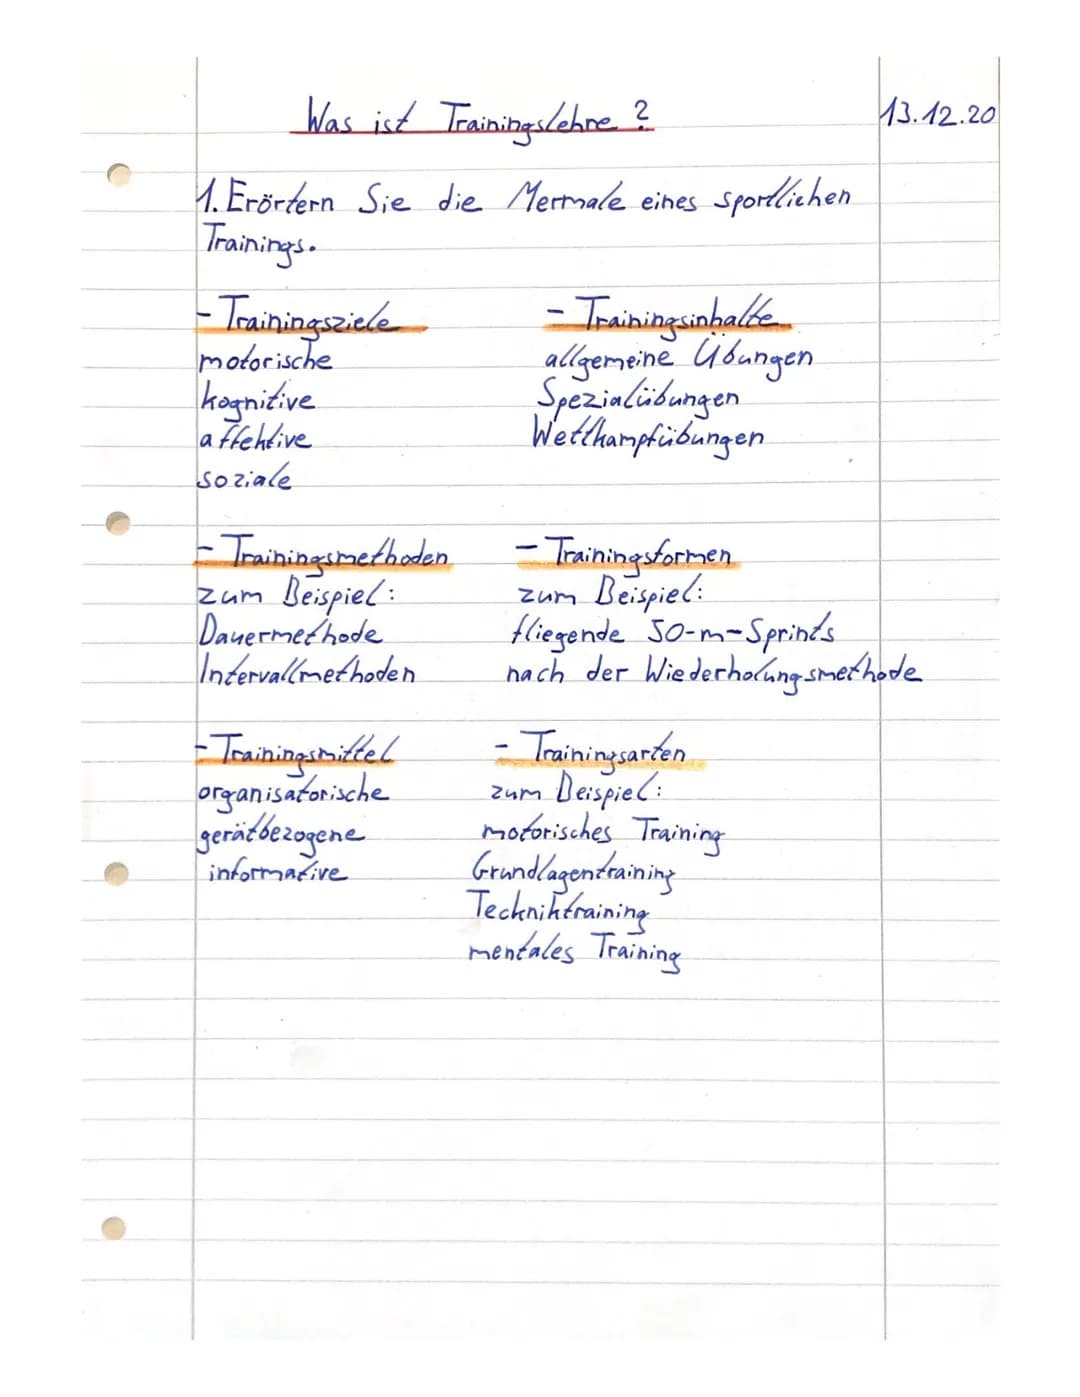 Was ist Trainingslehre?
13.12.20
1. Erörtern Sie die Mermale eines sportlichen
Trainings.
- Trainingsziele
motorische
kognitive
affektive
soziale
- Trainingsinhalte
allgemeine Übungen
Spezialübungen
Wettkampfübungen
- Trainingsmethoden
zum Beispiel:
Dauermethode
Intervallmethoden
- Trainingsformen
zum Beispiel:
fliegende 50-m-Sprints
nach der Wiederholungsmethode
- Trainingsmittel
organisatorische
gerätbezogene
informative
- Trainingsarten
zum Beispiel:
motorisches Training
Grundlagentraining
Teckniktraining
mentales Training